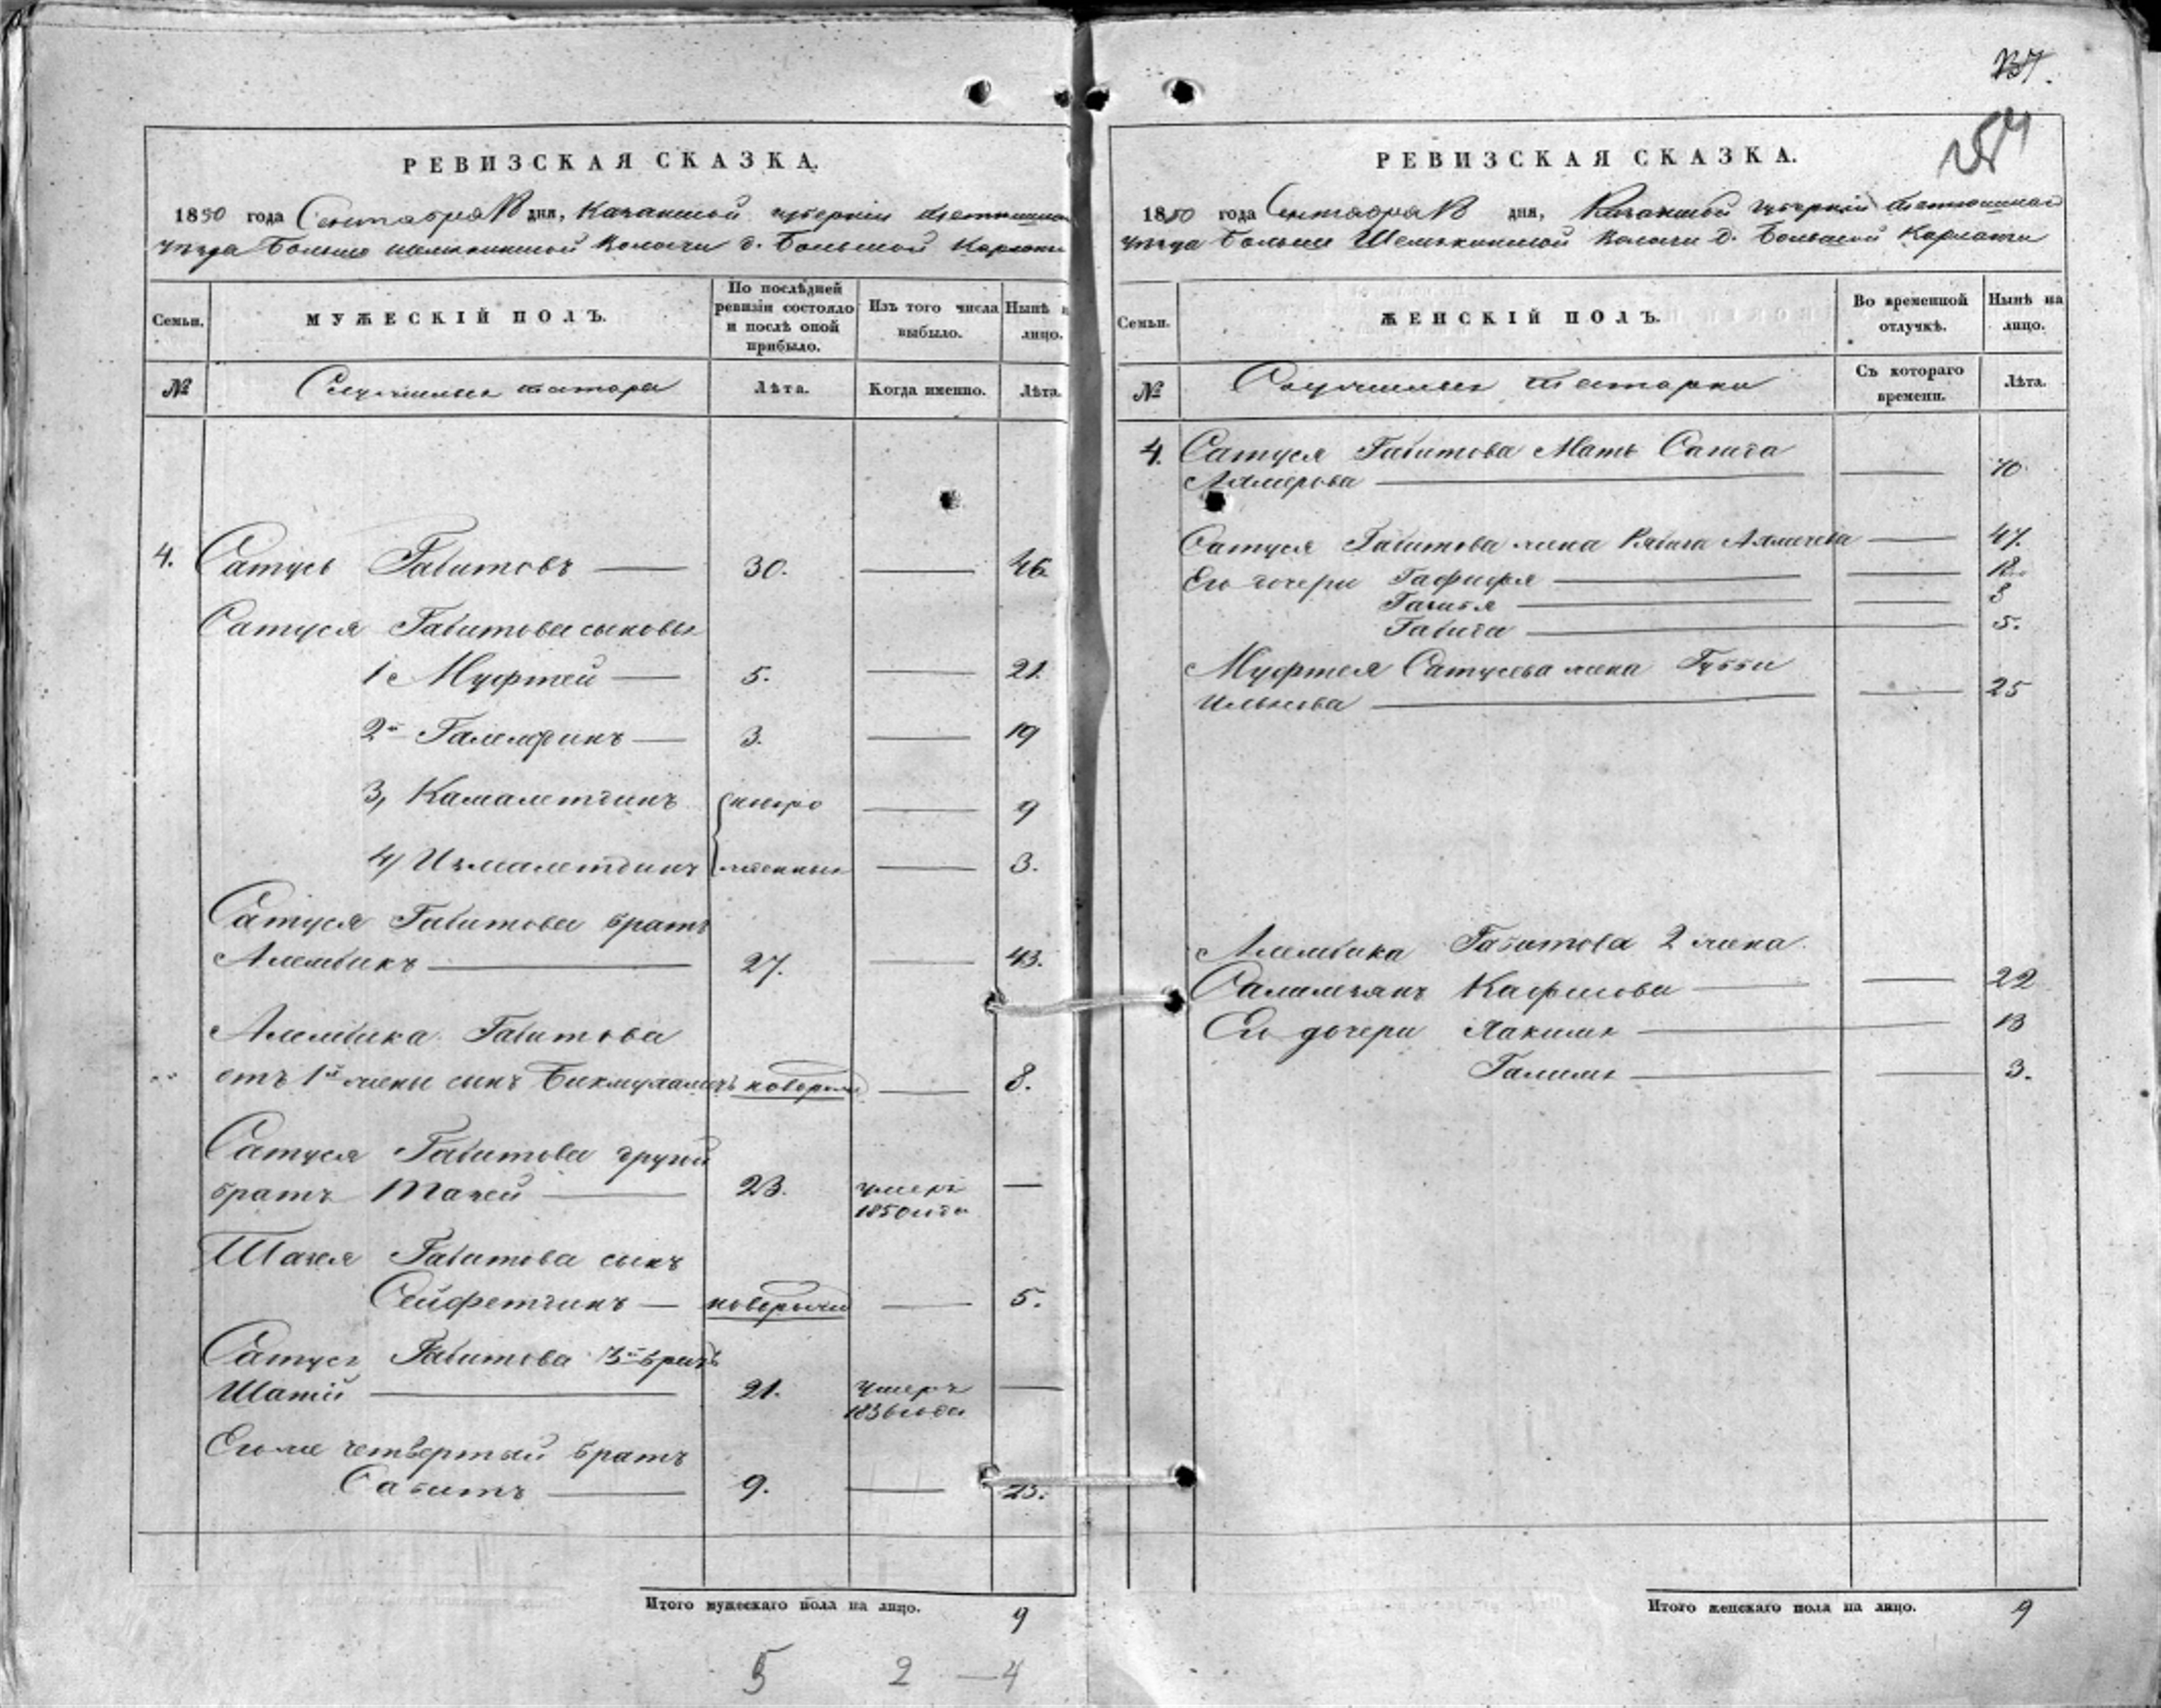 РЕВИЗСКАЯ СКАЗКА.
1850 года Сентября дня, Казанской губернии Тетюшскаго
уѣзда Больше Шемякинской волости д. Большой Карланги
Семьи.
МУЖЕСКІЙ ПОЛЪ.
По послѣдней ревизіи состояло и послѣ оной прибыло.
Изъ того числа выбыло.
Нынѣ на лицо.
№
Служилые татары
Лѣта.
Когда именно.
Лѣта.
4. Сатусь Габитовъ 30. 46.
Сатуся Габитова сыновья
1 Муфтей 5. 21.
2й 3. 19
3, Камалетдинъ новоро 9
4, жденные 3.
Сатуся Габитова братъ
Алембикъ 27. 43.
Алембика Габитова
отъ 1й жены сынъ новорож 8.
Сатуся Габитова другой
братъ 23. умеръ
1850 года
Габитова сынъ
Сейфетдинъ новорожд 5.
Сатуся Габитова 3й братъ
21. умеръ
1836 года
Его же четвертый братъ
Сабитъ 9. 25.
Итого мужескаго пола на лицо. 9
5 2 — 4
137.
РЕВИЗСКАЯ СКАЗКА.
1850 года Сентября дня, Казанской губерніи Тетюшскаго
уѣзда Больше Шемякинской волости д. Большой Карланги
Семьи.
ЖЕНСКІЙ ПОЛЪ.
Во временной отлучкѣ.
Нынѣ на лицо.
№
Служилыя татарки
Съ котораго времени.
Лѣта.
4. Сатуся Габитова Мать Сагида
70
Сатуся Габитова жена 47.
Его дочери Гафифя 18
3
Габида 5.
Муфтея Сатусева жена Губби
Ильясова 25
Алембика Габитова 2 жена
22
Его дочери 13
3.
Итого женскаго пола на лицо. 9